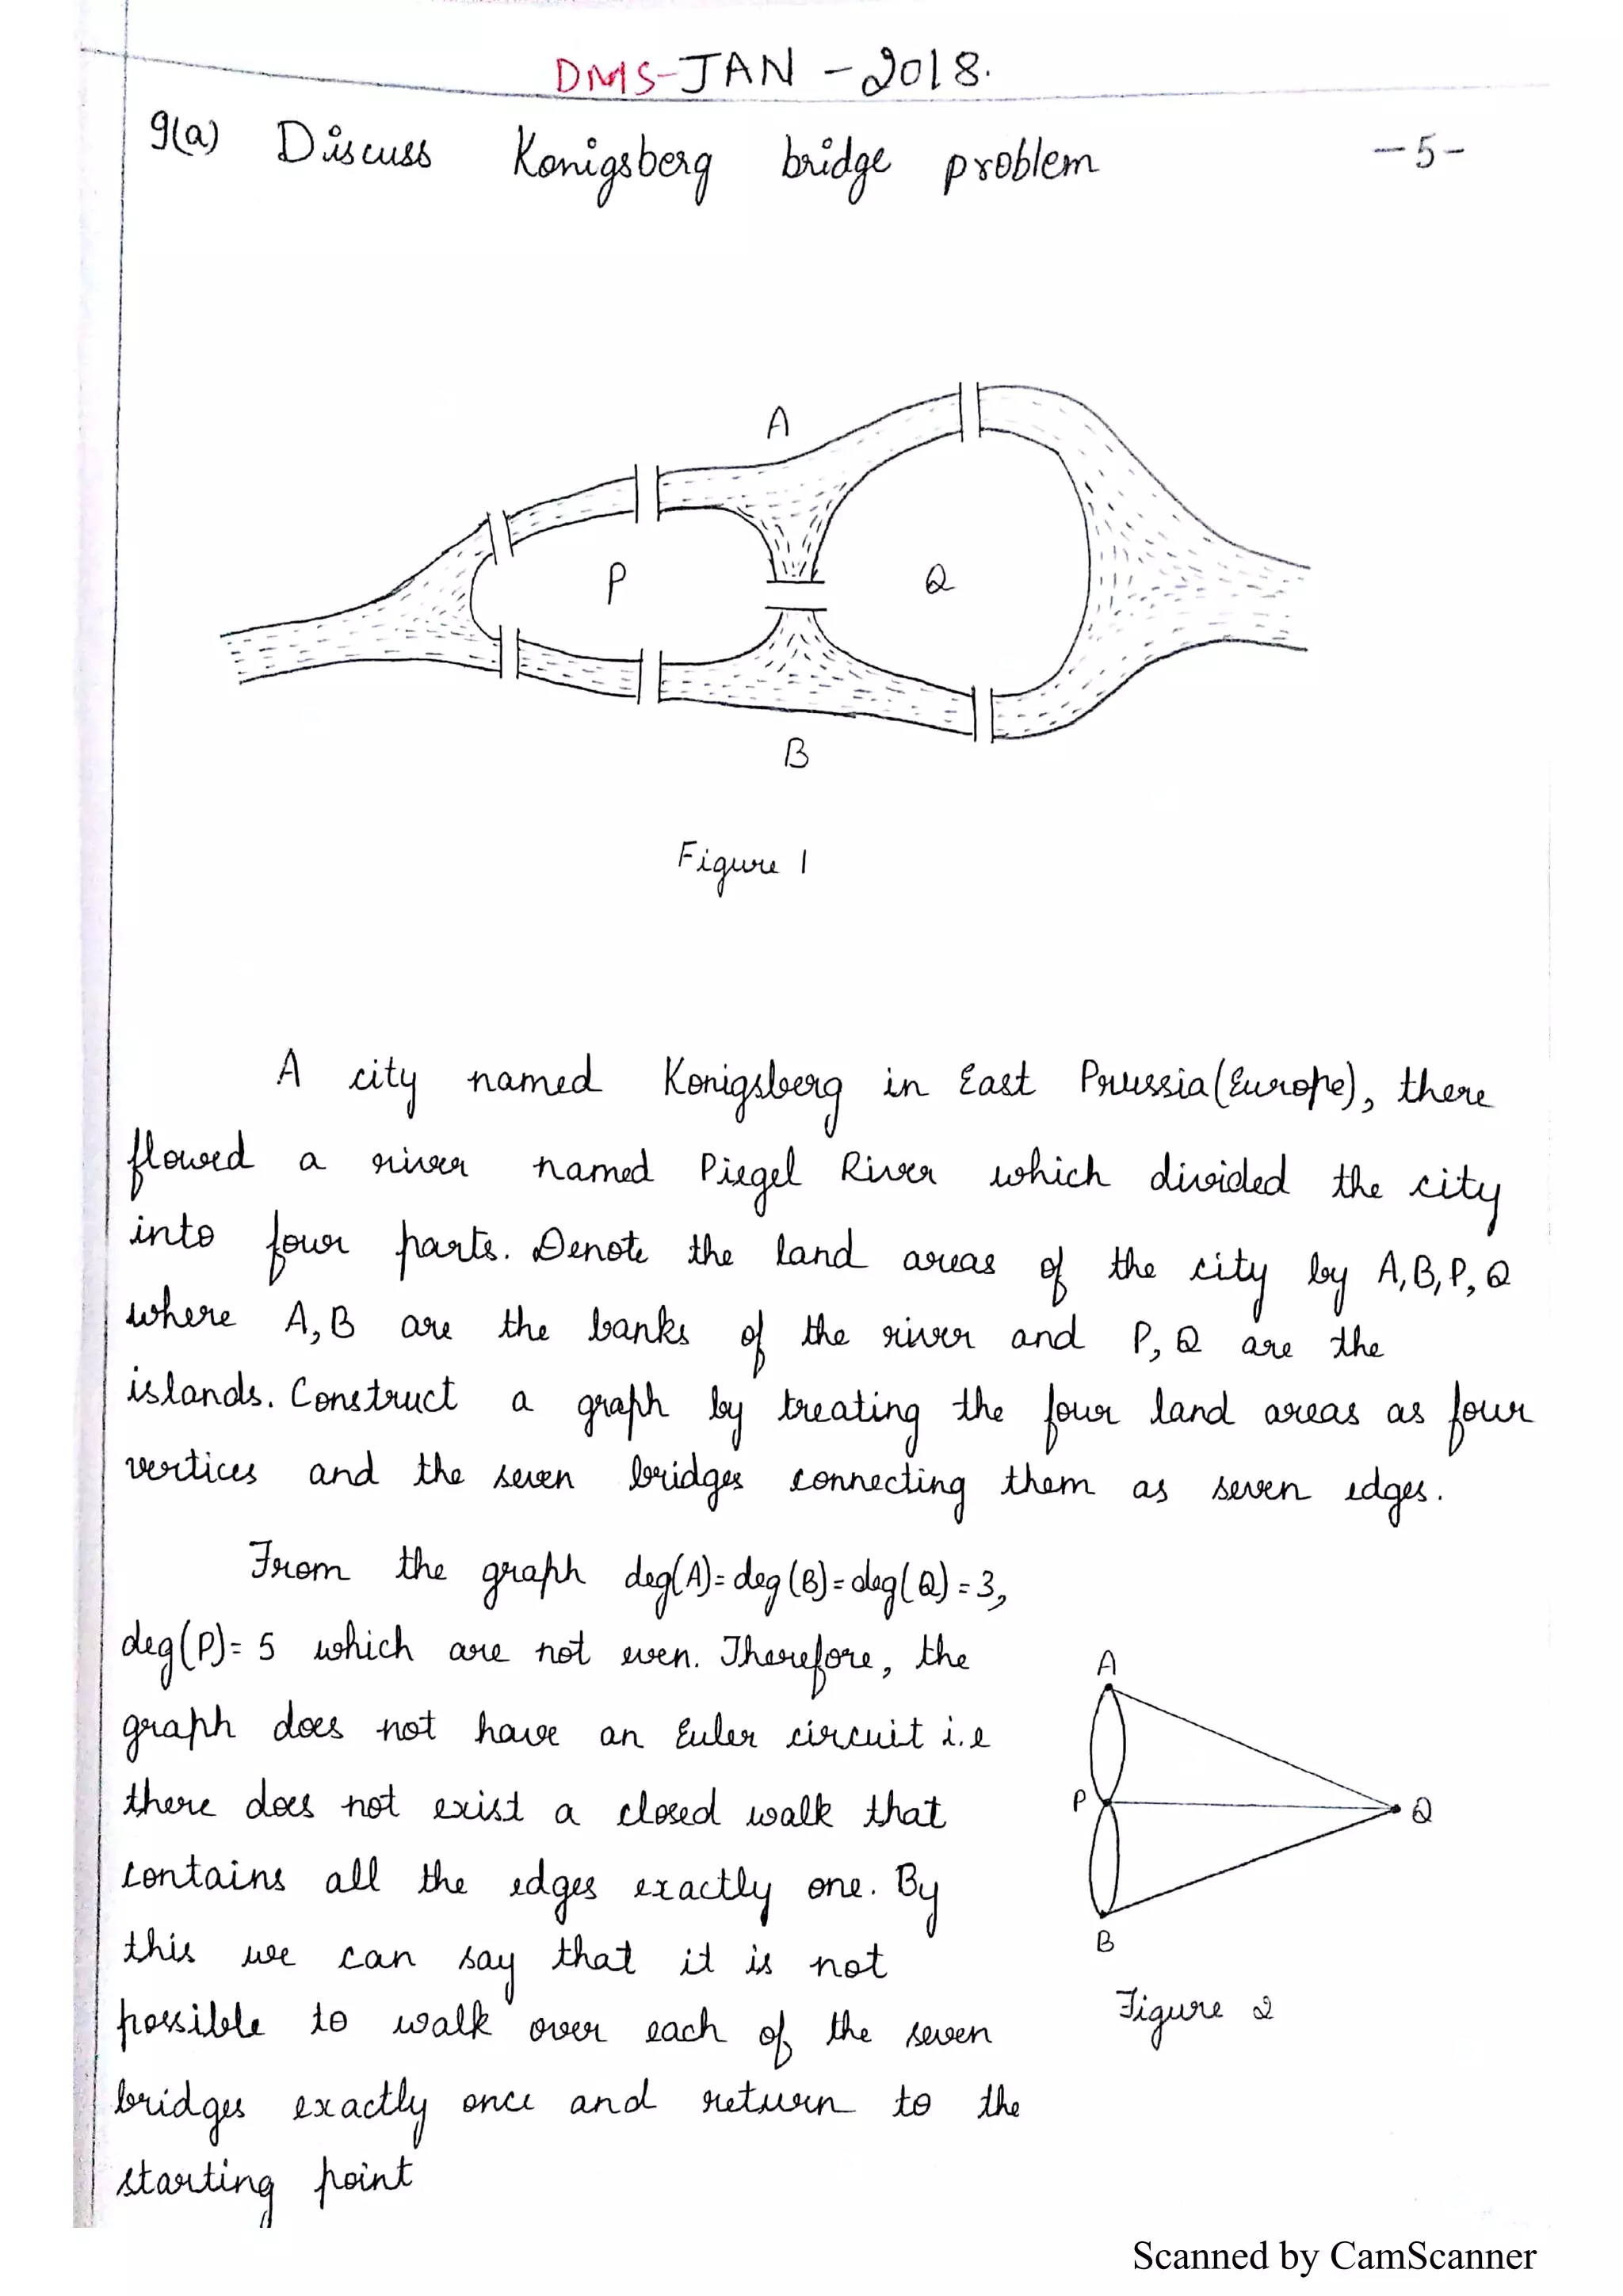 DMS-JAN - 2018.
9(a) Discuss Konigsberg bridge problem -5-
A
P
Q
B
Figure 1
A city named Konigsberg in East Prussia (Europe), there
flowed a river named Piegel River which divided the city
into four parts. Denote the land areas of the city by A, B, P, Q
where A, B are the banks of the river and P, Q are the
islands. Construct a graph by treating the four land areas as four
vertices and the seven bridges connecting them as seven edges.
From the graph deg(A) = deg(B) = deg(Q) = 3,
deg(P) = 5 which are not even. Therefore, the
graph does not have an Euler circuit i.e
there does not exist a closed walk that
contains all the edges exactly one. By
this we can say that it is not
possible to walk over each of the seven
bridges exactly once and return to the
starting point
A
P
Q
B
Figure 2
Scanned by CamScanner